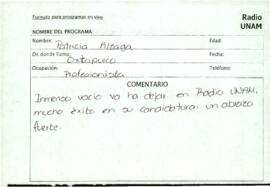 Formato para programas en vivo
Radio
UNAM
NOMBRE DEL PROGRAMA:
Nombre: Patricia Aleaga Edad:
De donde llama: Oxtapulco Fecha:
Ocupación: Profesionista Teléfono:
COMENTARIO
Inmenso vacio va ha dejar en Radio UNAM,
mucho éxito en su candidatura, un abrazo
fuerte.